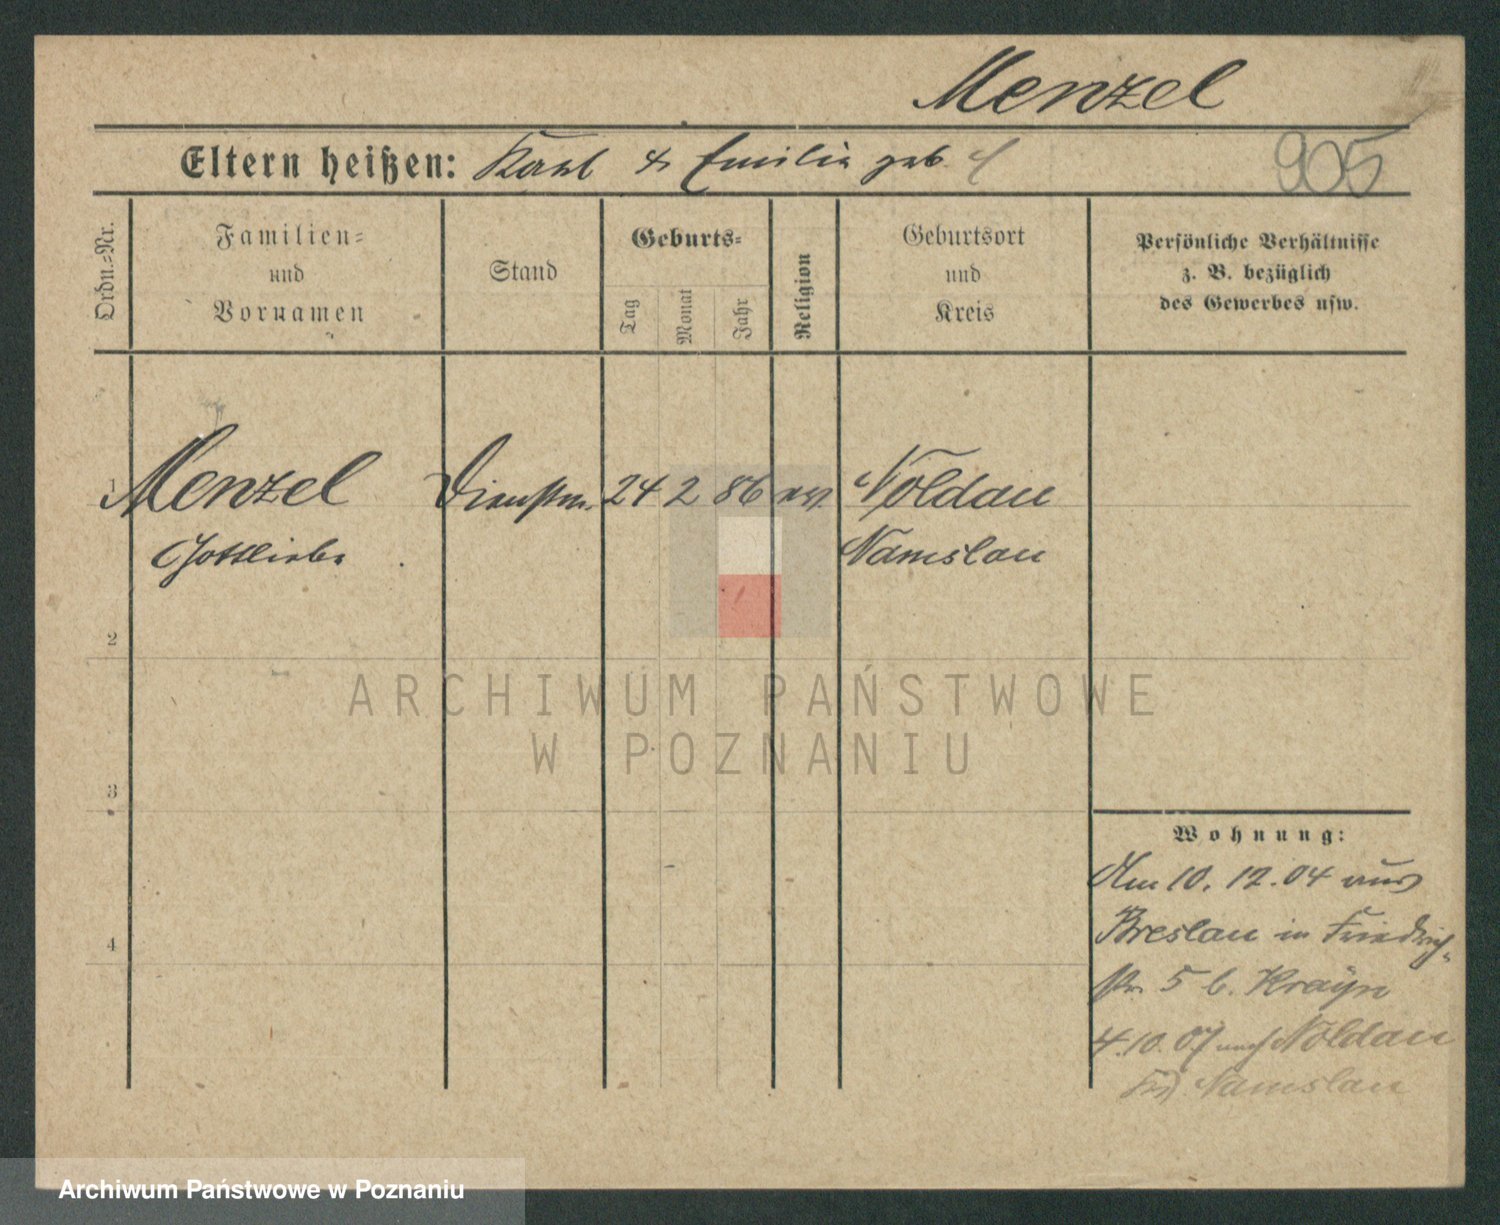 Menzel
Eltern heißen: Karl & Emilie geb.
905
Ordn.-Nr.
Familien-
und
Vornamen
Stand
Geburts-
Tag
Monat
Jahr
Religion
Geburtsort
und
Kreis
Persönliche Verhältnisse
z. B. bezüglich
des Gewerbes usw.
1 Menzel Dienstm. 24 2 86 ev. Noldau
Gottliebe Namslau
2
ARCHIWUM PAŃSTWOWE
W POZNANIU
3
Wohnung:
Am 10. 12. 04 aus
Breslau in Friedrich-
str. 5 b. Krayn
4
4.10.07 nach Noldau
Krs. Namslau
Archiwum Państwowe w Poznaniu